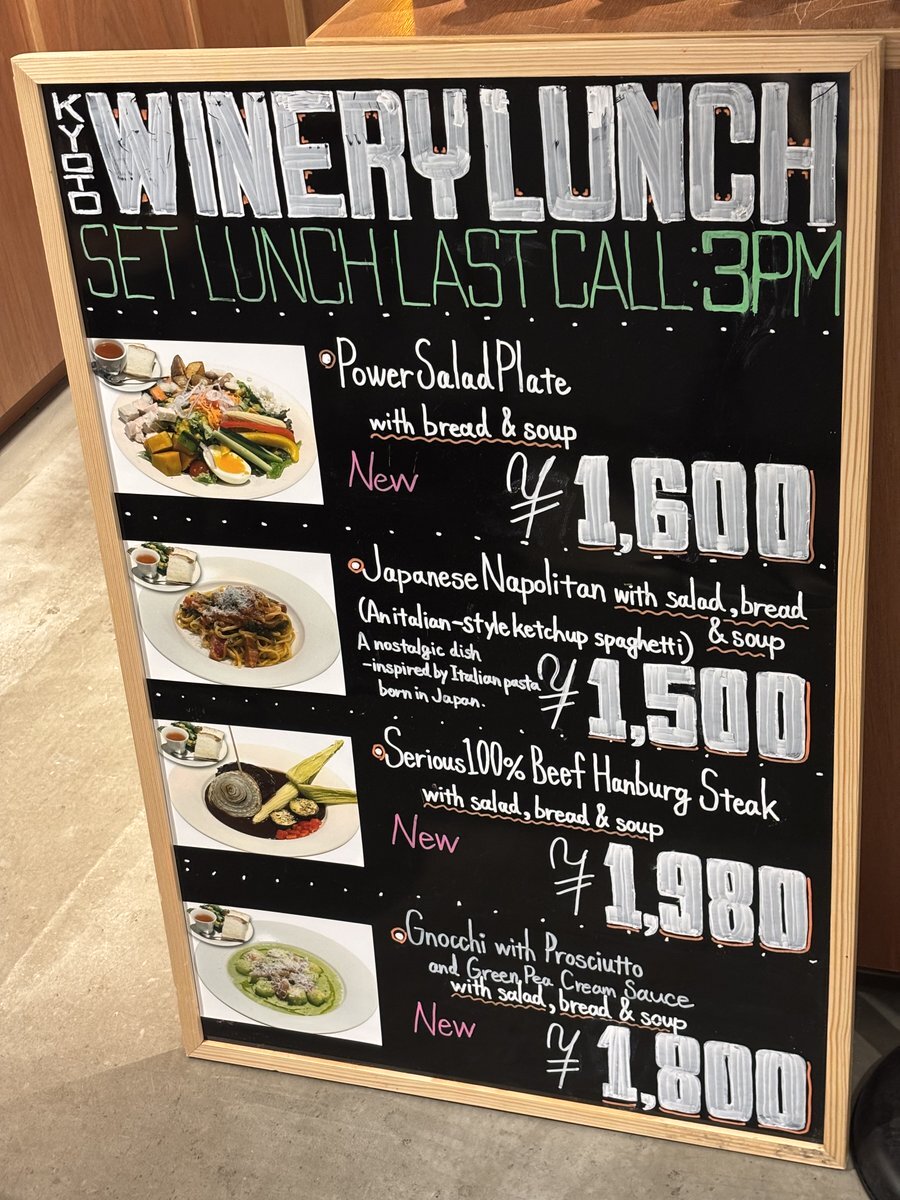 KYOTO
WINERY LUNCH
SET LUNCH LAST CALL:3PM
Power Salad Plate
with bread & soup
New
¥1,600
Japanese Napolitan with salad, bread
& soup
(An italian-style ketchup spaghetti)
A nostalgic dish
-inspired by Italian pasta
born in Japan.
¥1,500
Serious 100% Beef Hanburg Steak
with salad, bread & soup
New
¥1,980
Gnocchi with Prosciutto
and Green Pea Cream Sauce
with salad, bread & soup
New
¥1,800